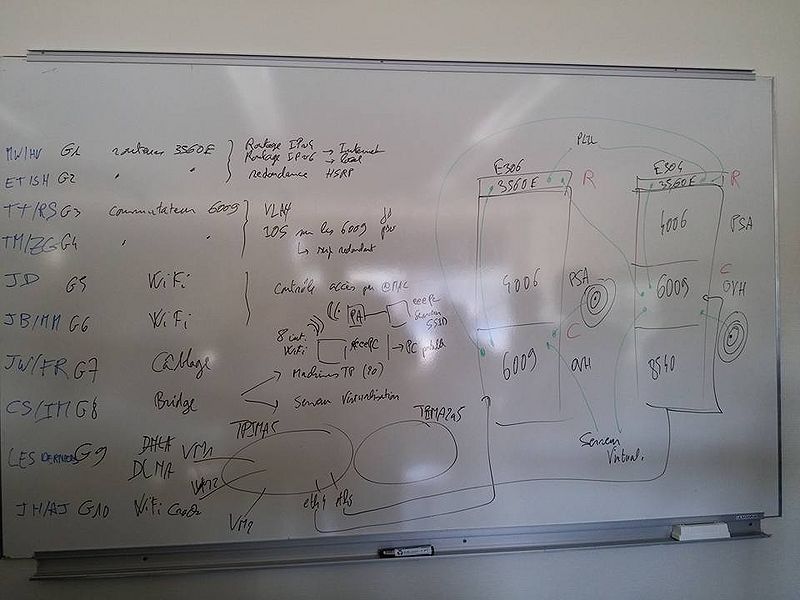 MW/HV G1 routeurs 3560E Routage IPv4 → Internet
Routage IPv6 → local
ET/SH G2 " " redondance HSRP
TT/RS G3 commutateur 6009 VLAN
TM/ZG G4 " " IOS sur les 6009
↳ sup redondant
JD G5 WiFi Contrôle accès par @MAC
JB/MM G6 WiFi
PA
eeePC
SSID
8 int. WiFi
eeePC → PC portable
JW/FR G7 Câblage
Machines TP (20)
CS/IM G8 Bridge
Serveur Virtualisation
LES DERNIERS G9 DHCP
DLNA
VM1
VM2
VM2
JM/AJ G10 WiFi
eth1
E306
3560E R
4006 PSA
C
6009 OVH
E304
3560E R
4006 PSA
C
6009 OVH
8540
Serveur
Virtual.